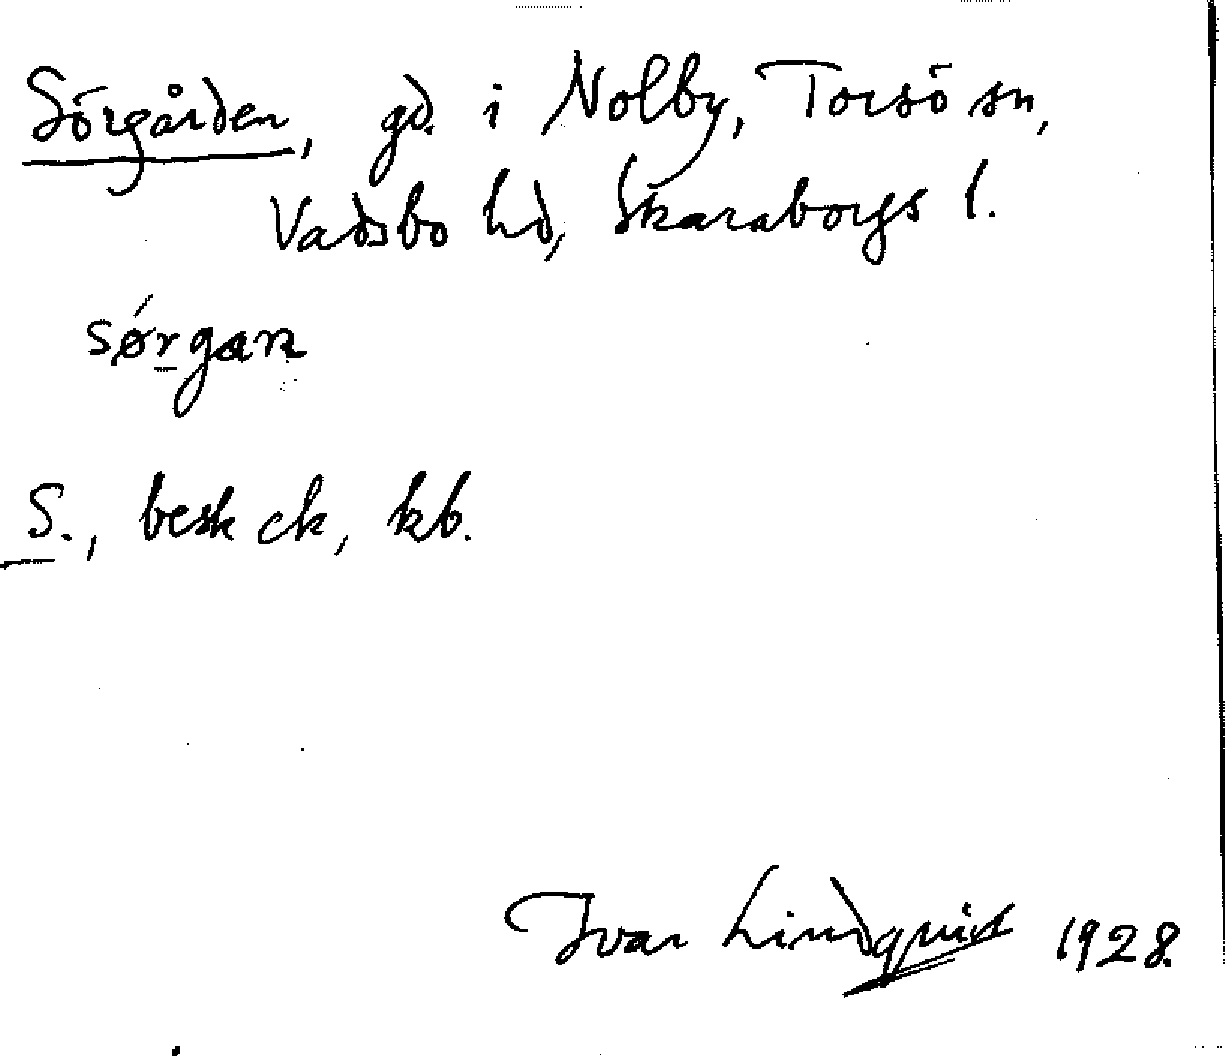 Sörgården, gd. i Nolby, Torsö sn,
Vadsbo hd, Skaraborgs l.
sǿrgan
S., besk ek, kb.
Ivar Lindquist 1928.